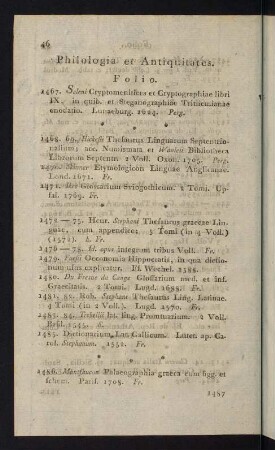 46
Philologia et Antiquitates.
Folio.
1467. Seleni Cryptomenisfera et Cryptographiae libri
IX. in quib. et Steganographiae Trithemianae
enodatio. Lunaeburg. 1624. Perg.
1468. 69. Hickesii Thesaurus Linguarum Septentrio-
nalium acc. Numismata et Wanleii Bibliotheca
Librorum Septentr. 2 Voll. Oxon. 1705. Perg.
1470. Etymologicon Linguae Anglicanae.
Lond. 1671. Fr.
1471. Ihre Glossarium Sviogothicum 2 Tomi. Up-
sal. 1769. Fr.
1473 — 75. Henr. Stephani Thesaurus graecae Lin-
guae, cum appendice. 5 Tomi (in 4 Voll.)
(1572). h. Fr.
1476 — 78. Id. opus integrum tribus Voll. Fr.
1479. Foesii Oeconomia Hippocratis, in qua dictio-
num usus explicatur. Ff. Wechel. 1588.
1480. Du Fresne du Cange Glossarium med. et inf.
Graecitatis. 2 Tomi. Lugd. 1688. Fr.
1481. 82. Rob. Stephani Thesaurus Ling. Latinae.
4 Tomi (in 2 Voll.). Lugd. 1570. Fr.
1483. 84. Trebellii Lat. Ling. Promtuarium. 2 Voll.
Basil. 1545. Fr.
1485. Dictionarium Lat. Gallicum. Lutet. ap. Ca-
rol. Stephanum. 1552. Fr.
1486. Montfaucon Palaeographia graeca cum figg. et
schem. Paris. 1708. Fr.
1487